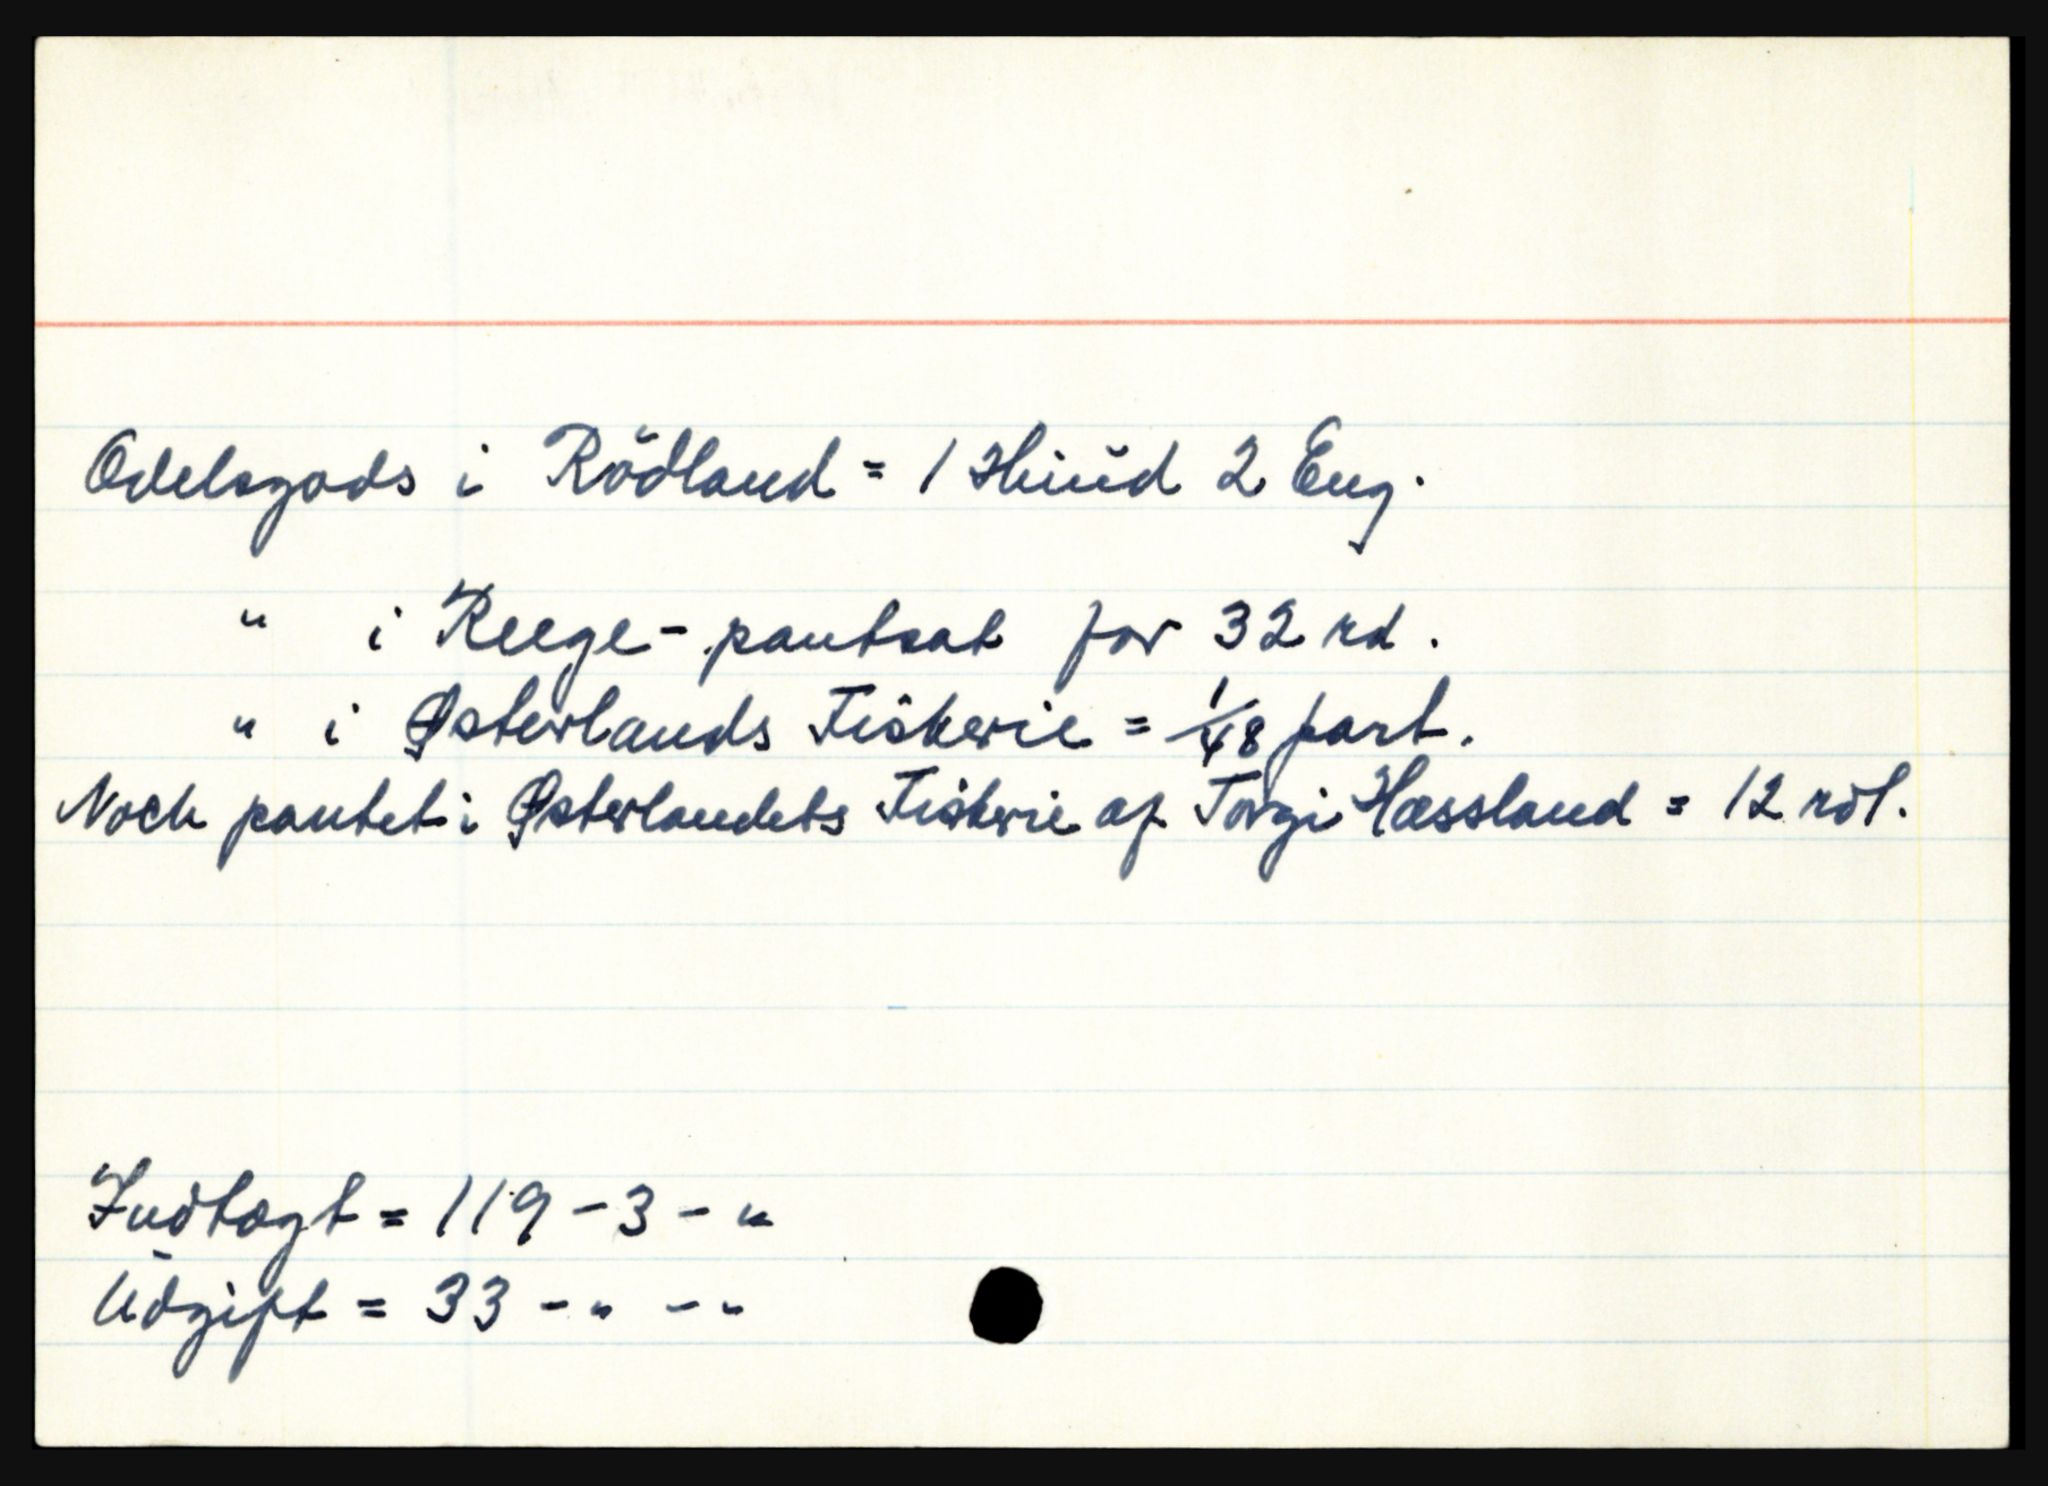 Odelsgods i Rödland = 1 Huud 2 Eng.
" i Reege - pantsat for 32 rd.
" i Østerlands Fiskerie = 1/48 part.
Noch pantet i Østerlandets Fiskerie af Torgi Hæssland = 12 rdl.
Indtægt = 119 - 3 - "
Udgift = 33 - " - "